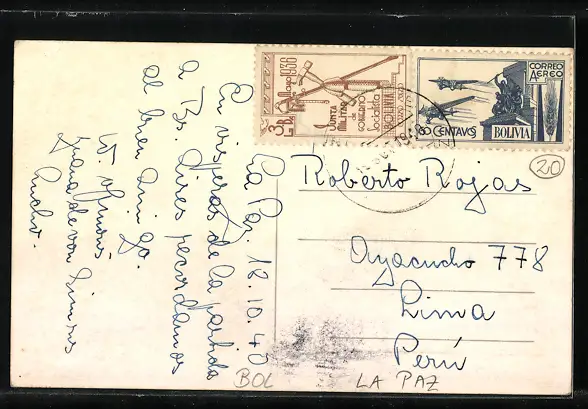 La Paz, 18.10.40
En vísperas de la partida
a Bs. Aires recordamos
al buen amigo.
Lucho.
3 Bs
17 Mayo 1936
JUNTA
MILITAR
DE
GOBIERNO
Socialista
BOLIVIA
CORREO
AEREO
30 CENTAVOS
BOLIVIA
20
Roberto Rojas
Ayacucho 778
Lima
Perú
BOL
LA PAZ